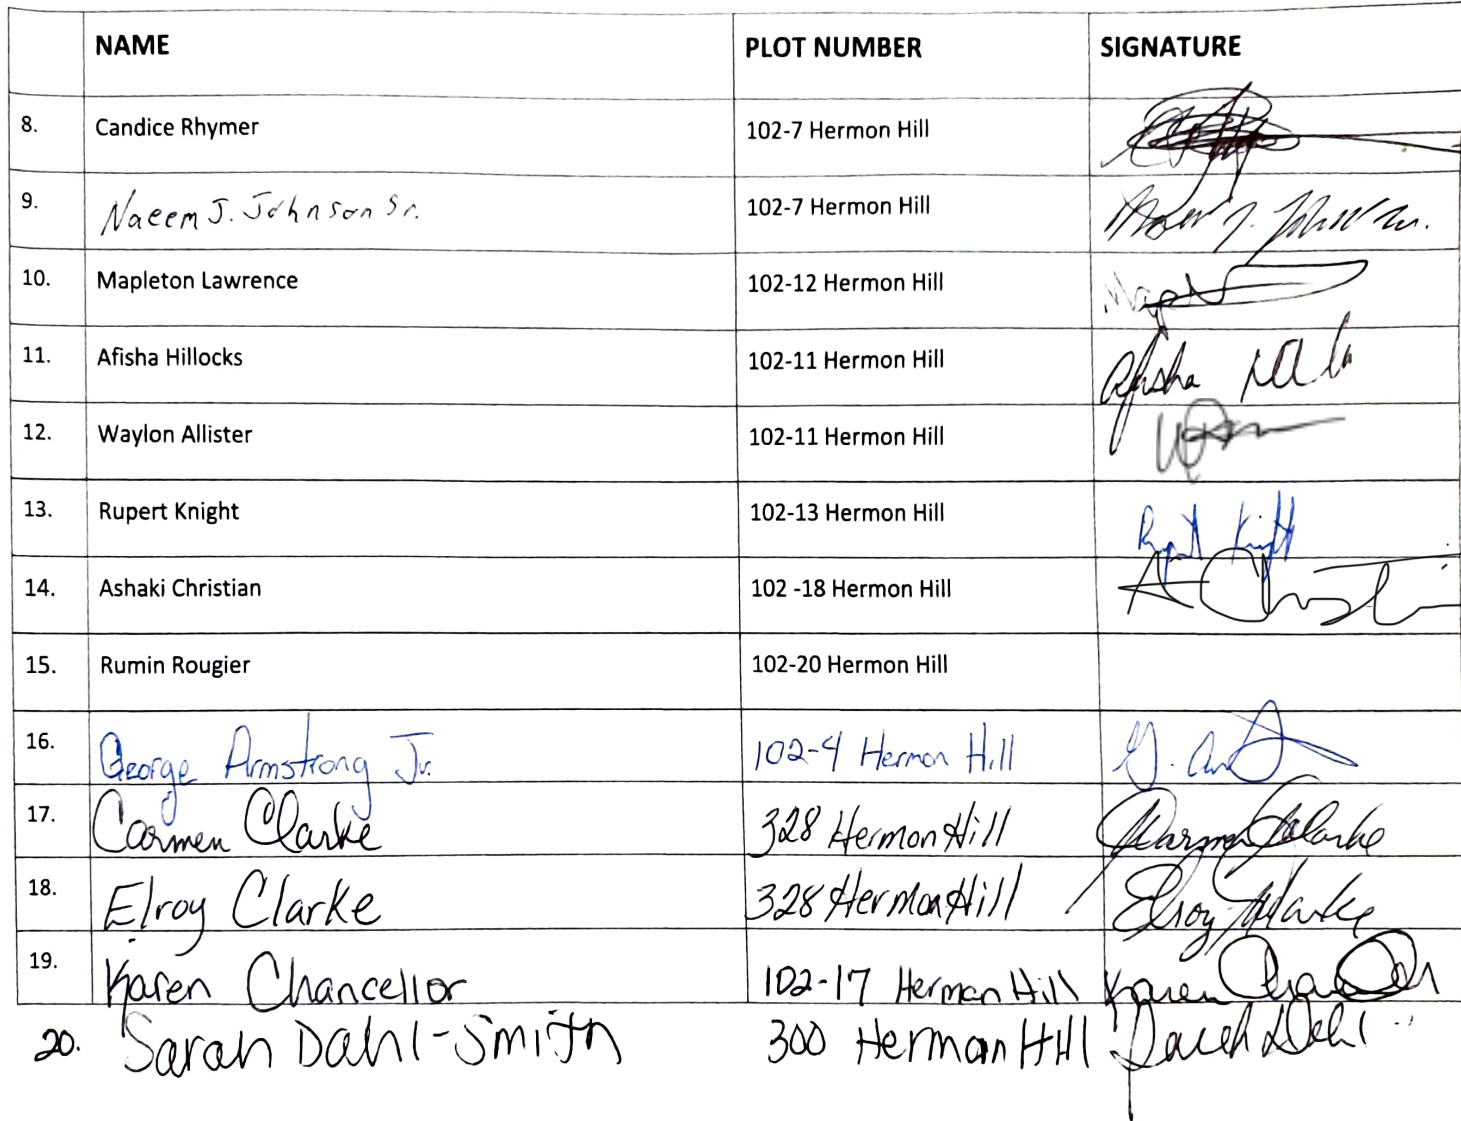 NAME PLOT NUMBER SIGNATURE
8. Candice Rhymer 102-7 Hermon Hill
9. Naeem J. Johnson Sr. 102-7 Hermon Hill
10. Mapleton Lawrence 102-12 Hermon Hill
11. Afisha Hillocks 102-11 Hermon Hill Afisha
12. Waylon Allister 102-11 Hermon Hill
13. Rupert Knight 102-13 Hermon Hill Rupert Knight
14. Ashaki Christian 102 -18 Hermon Hill A Christian
15. Rumin Rougier 102-20 Hermon Hill
16. George Armstrong Jr. 102-4 Hermon Hill G.
17. Carmen Clarke 328 Hermon Hill Carmen Clarke
18. Elroy Clarke 328 Hermon Hill Elroy Clarke
19. Karen Chancellor 102-17 Herman Hill Karen
20. Sarah Dahl-Smith 300 Herman Hill Sarah Dahl